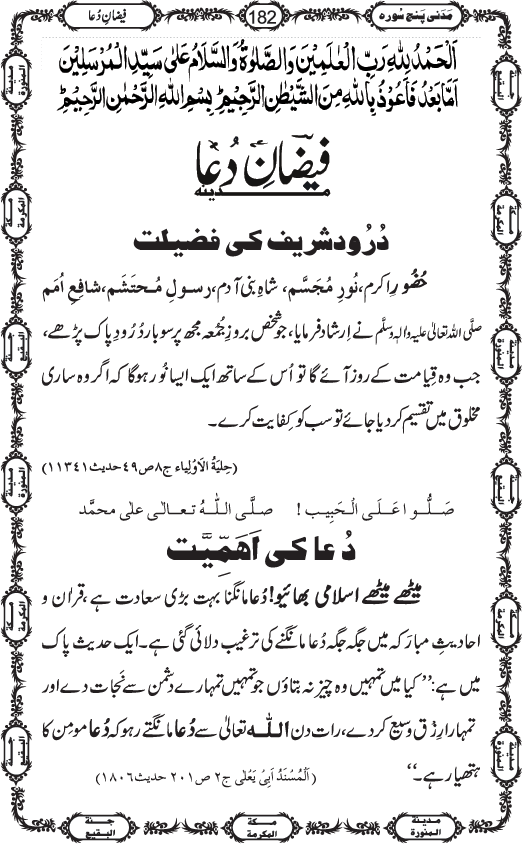 مَدَنی پنج سورہ
182
فیضانِ دُعا
اَلْحَمْدُ لِلّٰهِ رَبِّ الْعٰلَمِیْنَ وَالصَّلٰوةُ وَالسَّلَامُ عَلٰی سَیِّدِ الْمُرْسَلِیْنَ
اَمَّا بَعْدُ فَاَعُوْذُ بِاللّٰهِ مِنَ الشَّیْطٰنِ الرَّجِیْمِ ؕ بِسْمِ اللّٰهِ الرَّحْمٰنِ الرَّحِیْمِ ؕ
فیضانِ دُعا
مدینہ
دُرُود شریف کی فضیلت
حُضُورِ اکرم، نُورِ مُجَسَّم، شاہِ بنی آدم، رسولِ مُحتَشَم، شافِعِ اُمَم
صلَّی اللہ تعالٰی علیہ واٰلہٖ وسلَّم نے اِرشاد فرمایا، جو شخص بروزِ جُمعہ مجھ پر سو بار دُرُودِ پاک پڑھے،
جب وہ قِیامت کے روز آئے گا تو اُس کے ساتھ ایک ایسا نُور ہوگا کہ اگر وہ ساری
مخلوق میں تقسیم کر دیا جائے تو سب کو کِفایت کرے۔
(حِلیَۃُ الاَوْلِیاء ج۸ ص۴۹ حدیث ۱۱۳۴۱)
صَلُّوا عَلَی الْحَبِیب! صلَّی اللہُ تعالٰی علٰی محمَّد
دُعا کی اَھَمِّیَّت
میٹھے میٹھے اسلامی بھائیو! دُعا مانگنا بہت بڑی سعادت ہے، قران و
احادیثِ مبارَکہ میں جگہ جگہ دُعا مانگنے کی ترغیب دلائی گئی ہے۔ ایک حدیثِ پاک
میں ہے: ’’کیا میں تمہیں وہ چیز نہ بتاؤں جو تمہیں تمہارے دشمن سے نَجات دے اور
تمہارا رِزْق وسیع کردے، رات دن اللہ تعالیٰ سے دُعا مانگتے رہو کہ دُعا مومِن کا
ہتھیار ہے۔‘‘ (اَلْمُسْنَدُ اَبِیْ یَعْلٰی ج۲ ص۲۰۱ حدیث ۱۸۰۶)
مدینۃ المنورۃ
مکۃ المکرمۃ
جنۃ البقیع
مدینۃ المنورۃ
مکۃ المکرمۃ
جنۃ البقیع
جنۃ البقیع
مکۃ المکرمۃ
مدینۃ المنورۃ
جنۃ البقیع
مکۃ المکرمۃ
مدینۃ المنورۃ
جنۃ البقیع
مکۃ المکرمۃ
مدینۃ المنورۃ